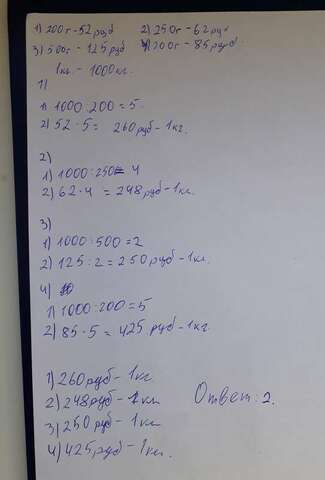 1) 200г-52руб 2) 250г-62руб
3) 500г-125руб 4) 200г-85руб
1кг. - 1000кг.
1)
1) 1000:200=5
2) 52·5= 260руб-1кг.
2)
1) 1000:250= 4
2) 62·4 = 248руб-1кг.
3)
1) 1000:500=2
2) 125:2=250руб-1кг.
4)
1) 1000:200=5
2) 85·5= 425 руб-1кг.
1) 260руб-1кг
2) 248руб-1кг
3) 250руб-1кг
4) 425руб-1кг.
Ответ: 2.